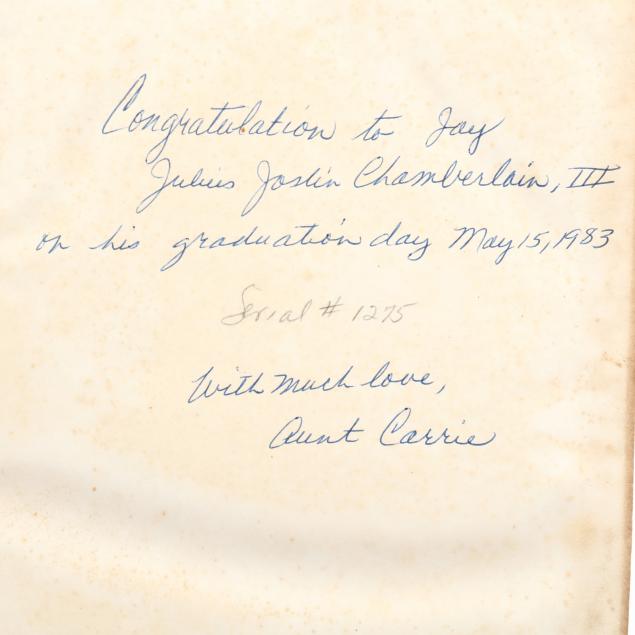 Congratulation to Jay
Julius Joslin Chamberlain, III
on his graduation day May 15, 1983
Serial # 1275
With much love,
Aunt Carrie